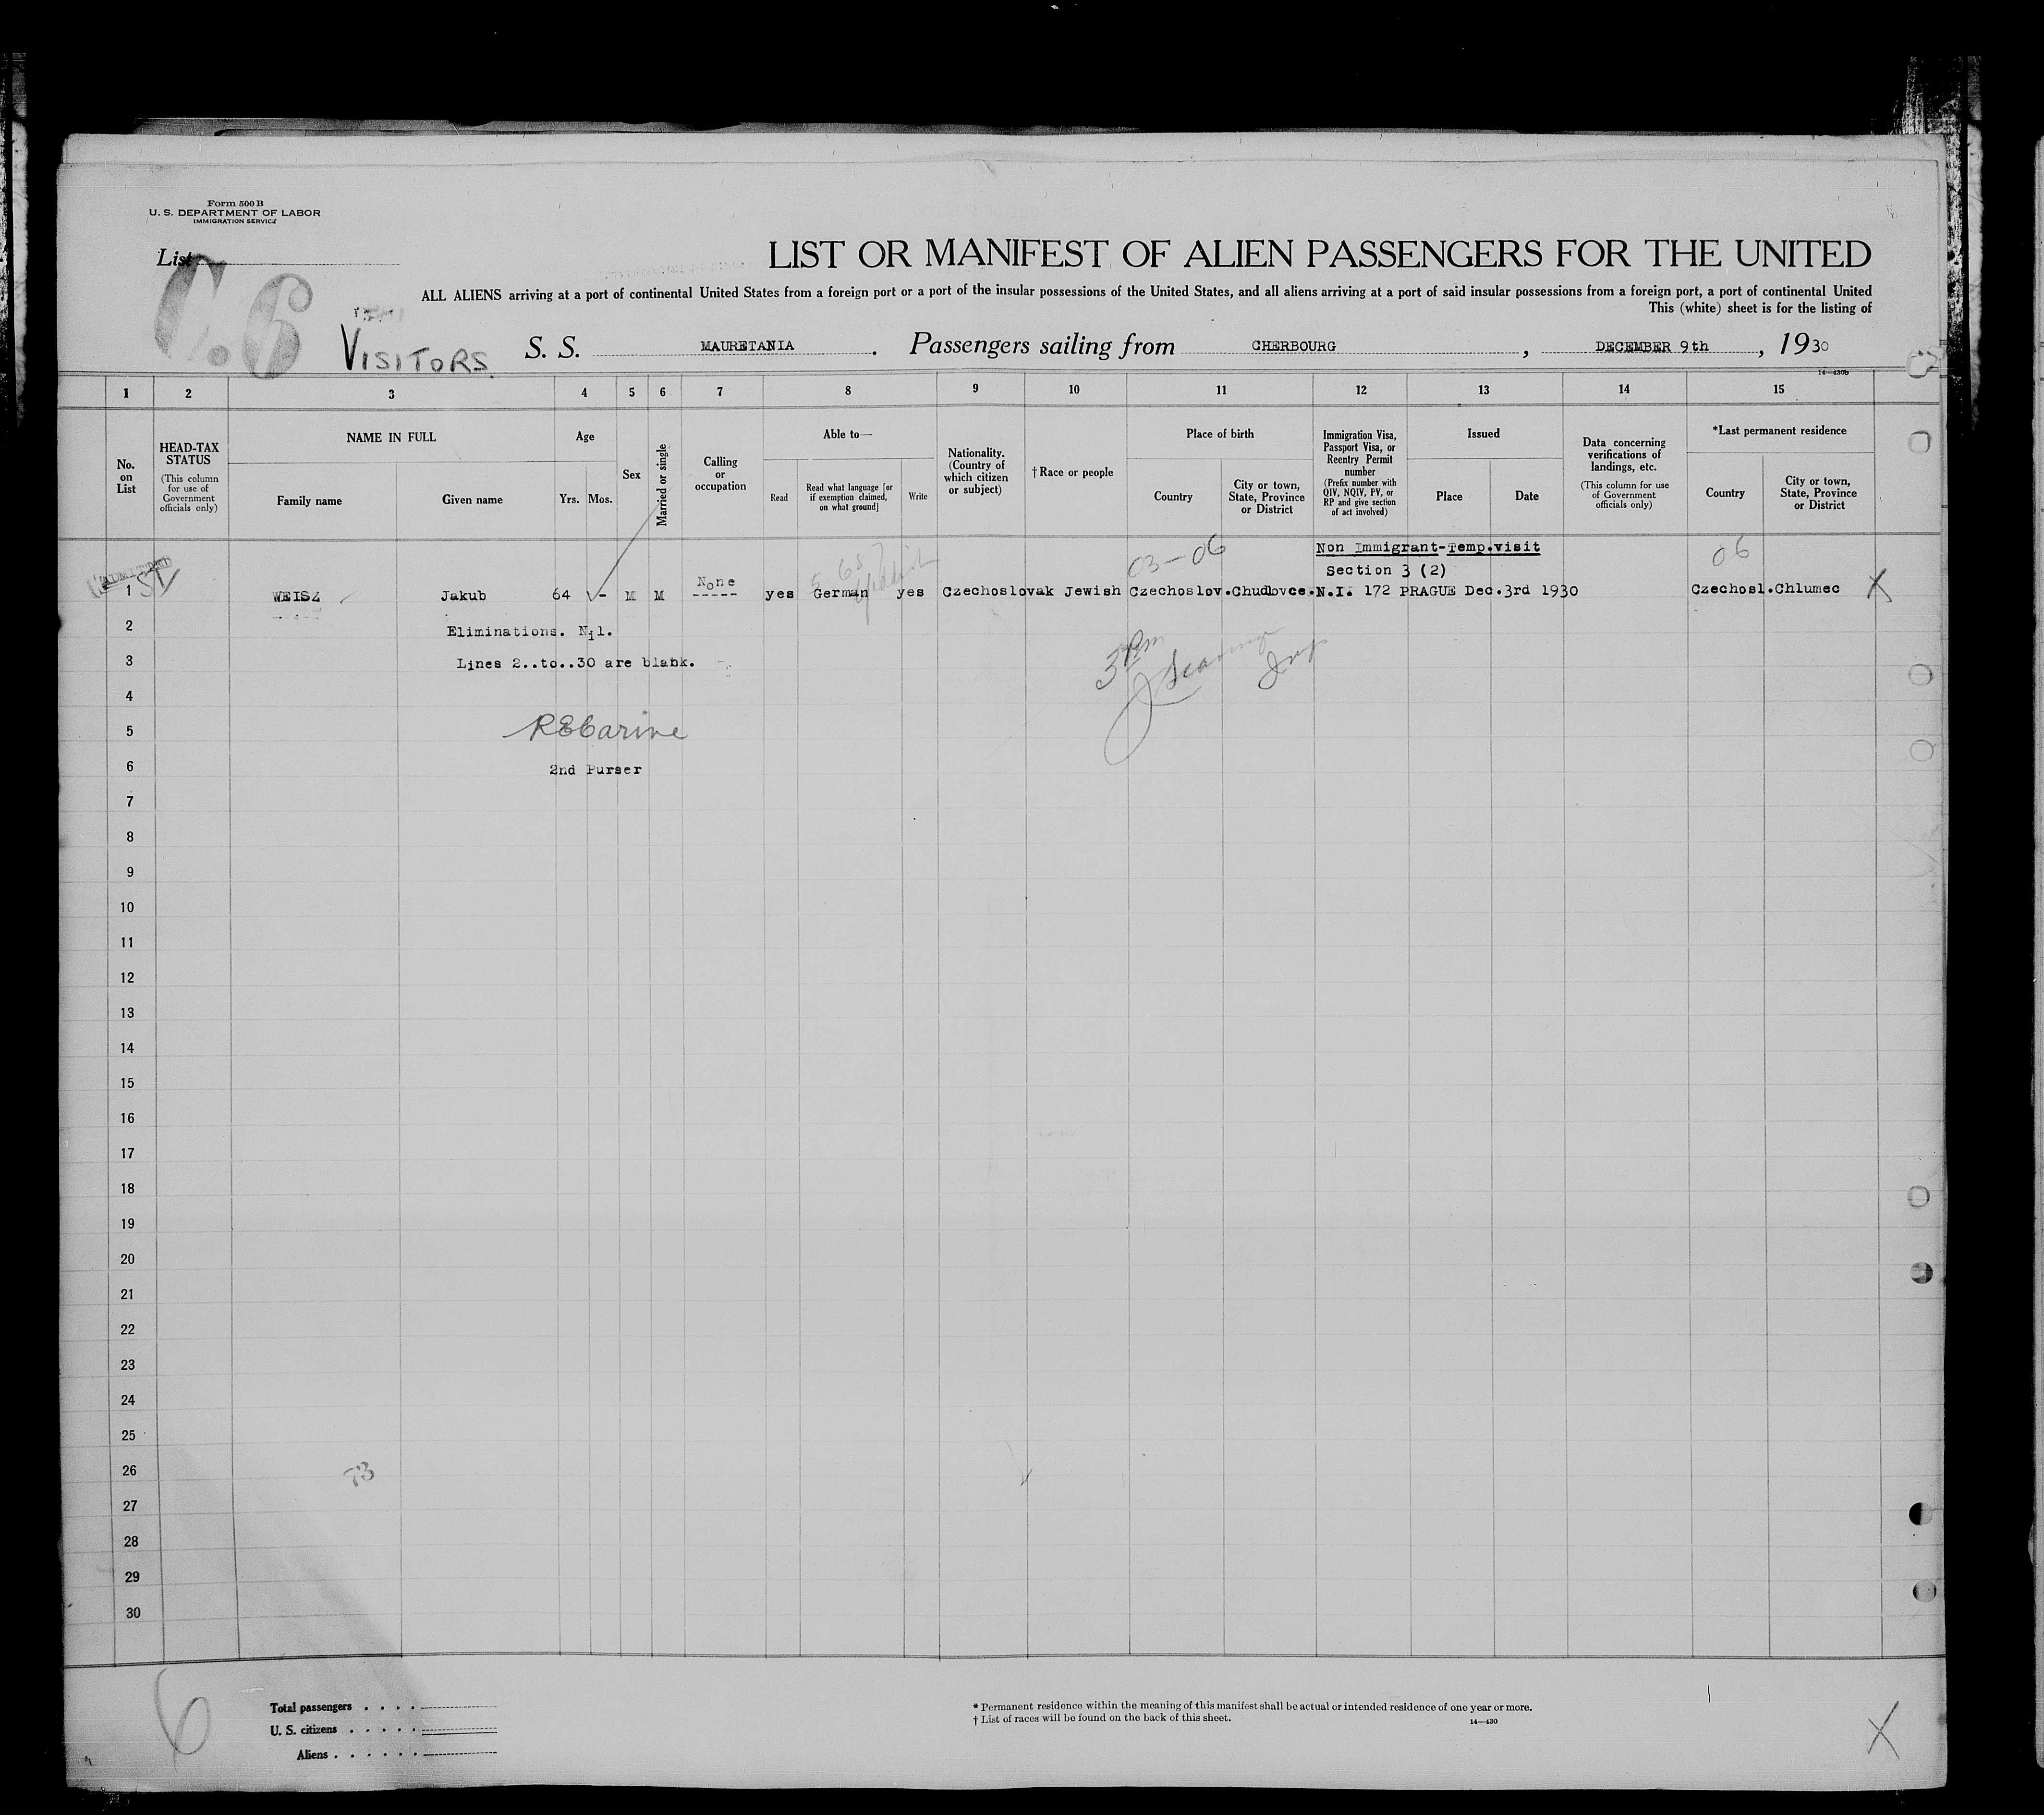 Form 500 B
U. S. DEPARTMENT OF LABOR
IMMIGRATION SERVICE
List
C.6
VISITORS
LIST OR MANIFEST OF ALIEN PASSENGERS FOR THE UNITED
ALL ALIENS arriving at a port of continental United States from a foreign port or a port of the insular possessions of the United States, and all aliens arriving at a port of said insular possessions from a foreign port, a port of continental United
This (white) sheet is for the listing of
S. S. MAURETANIA . Passengers sailing from CHERBOURG , DECEMBER 9th , 1930
14—430b
1 2 3 4 5 6 7 8 9 10 11 12 13 14 15
No. on List
HEAD-TAX STATUS (This column for use of Government officials only)
NAME IN FULL
Family name Given name
Age
Yrs. Mos.
Sex
Married or single
Calling or occupation
Able to—
Read
Read what language [or if exemption claimed, on what ground]
Write
Nationality. (Country of which citizen or subject)
†Race or people
Place of birth
Country
City or town, State, Province or District
Immigration Visa, Passport Visa, or Reentry Permit number (Prefix number with QIV, NQIV, PV, or RP and give section of act involved)
Issued
Place Date
Data concerning verifications of landings, etc. (This column for use of Government officials only)
*Last permanent residence
Country
City or town, State, Province or District
03-06
Non Immigrant-Temp.visit
06
Section 3 (2)
ADMITTED
1 WEISZ Jakub 64 - M M None yes German Yiddish yes Czechoslovak Jewish Czechoslov.Chudlovce.N.I. 172 PRAGUE Dec.3rd 1930 Czechosl.Chlumec X
2 Eliminations. Nil.
3 Lines 2..to..30 are blank.
3 PM
4
5 RECarine
6 2nd Purser
7
8
9
10
11
12
13
14
15
16
17
18
19
20
21
22
23
24
25
26
73
27
28
29
30
6
Total passengers . . . .
U. S. citizens . . . . .
Aliens . . . . . .
* Permanent residence within the meaning of this manifest shall be actual or intended residence of one year or more.
† List of races will be found on the back of this sheet.
14—430
X